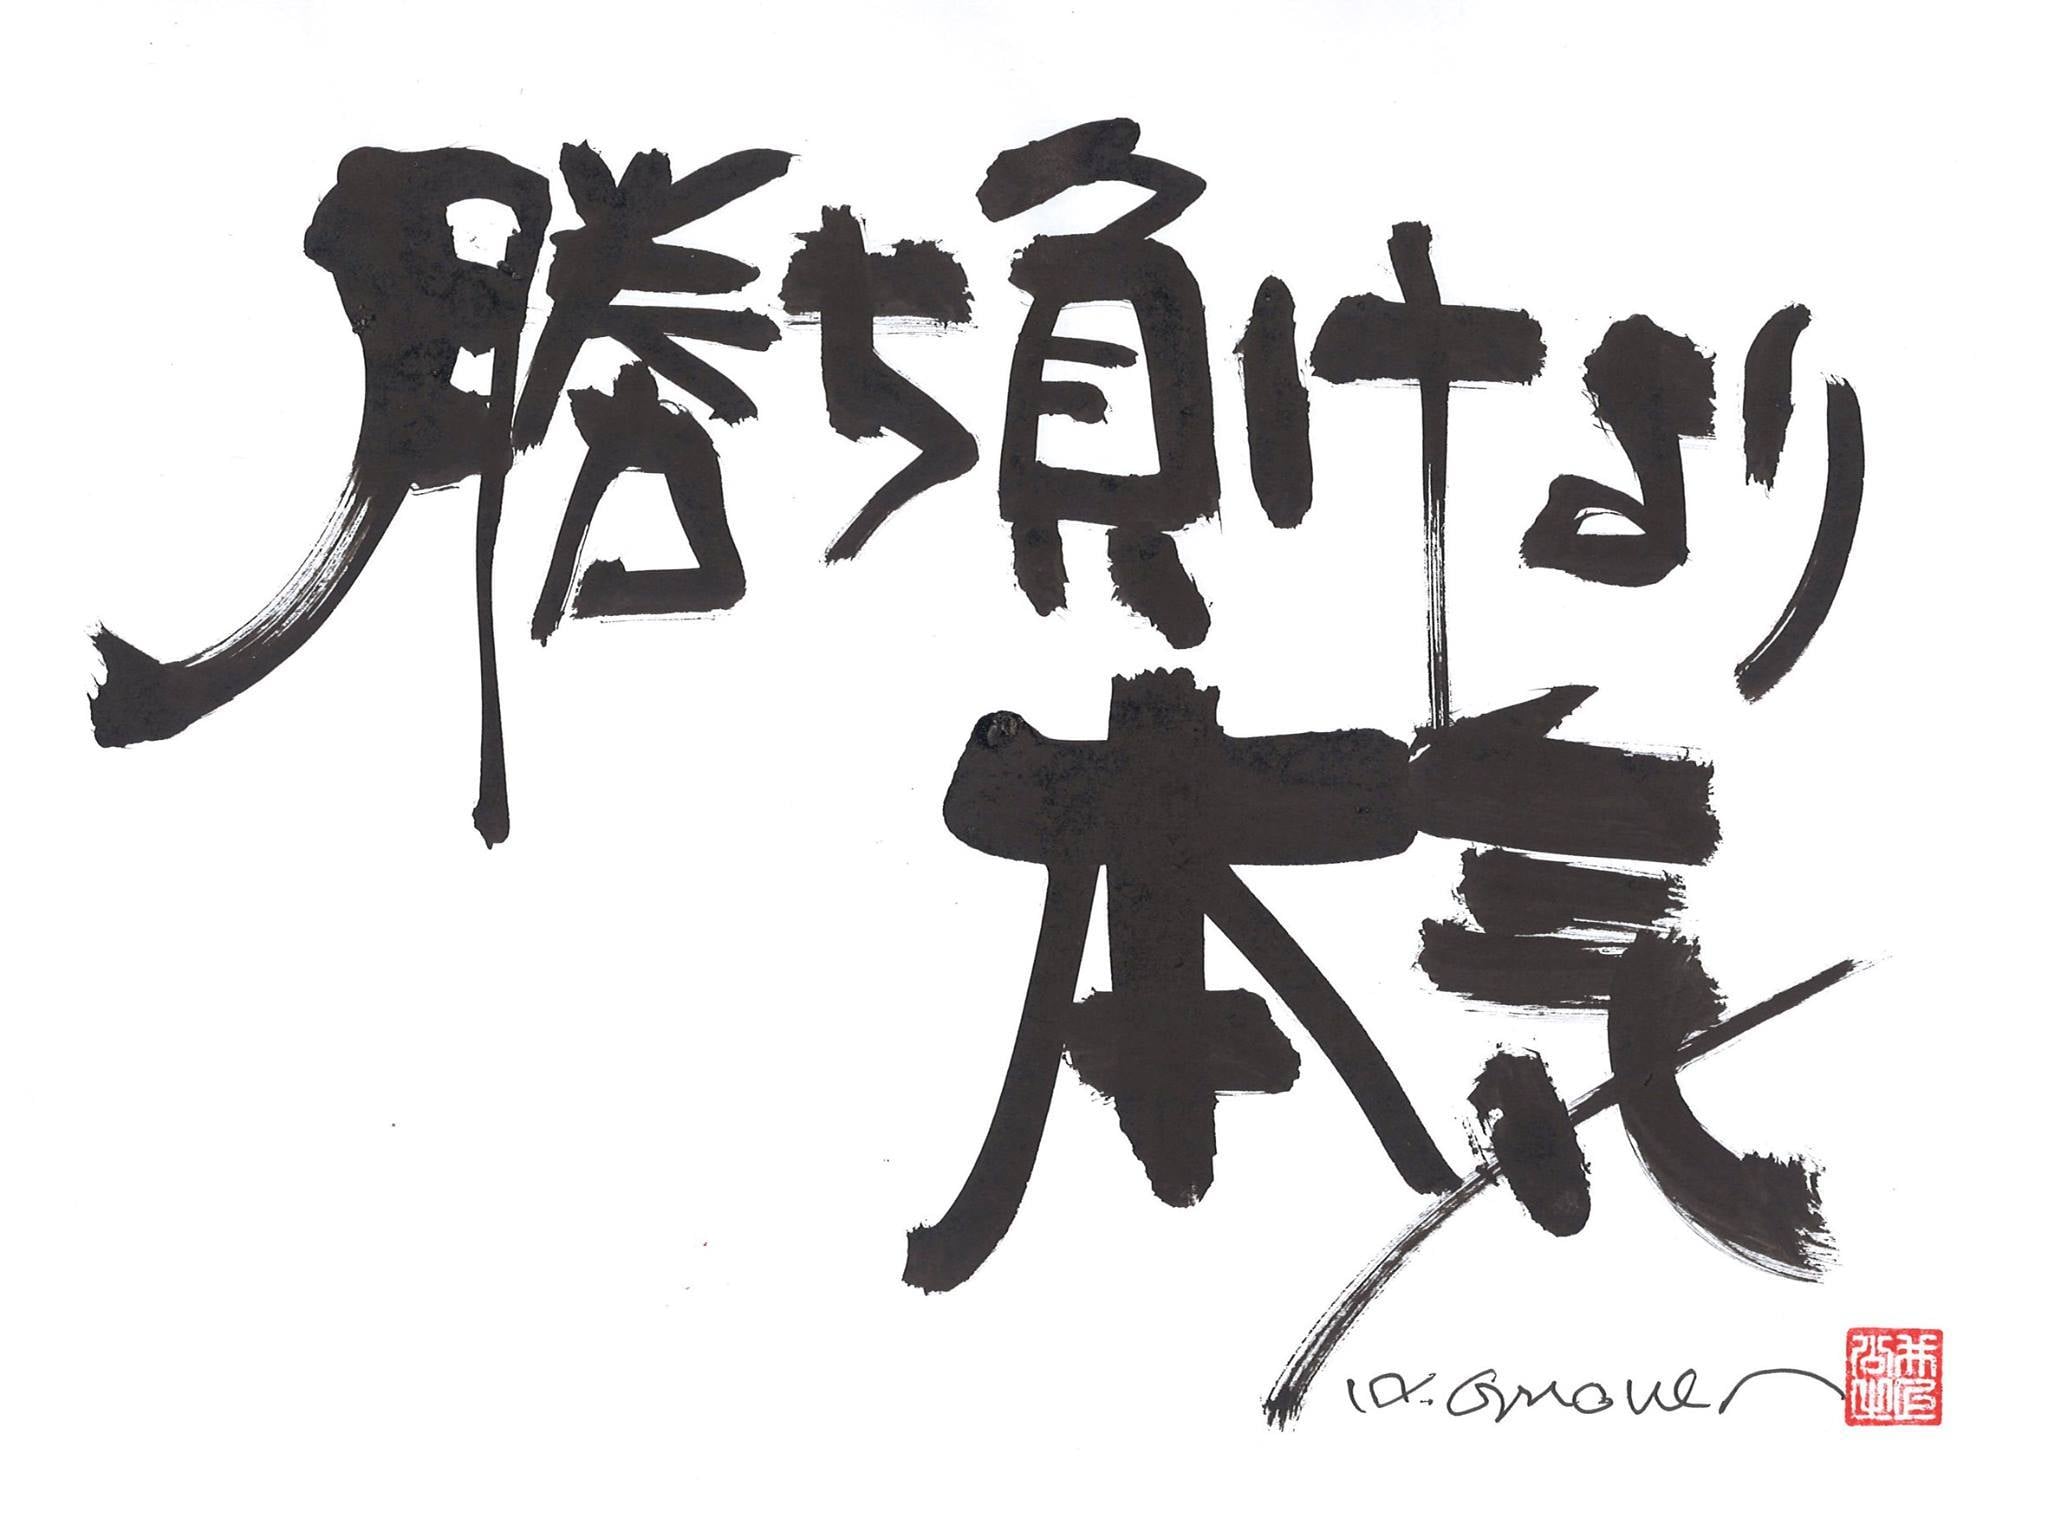 勝ち負けより
本気